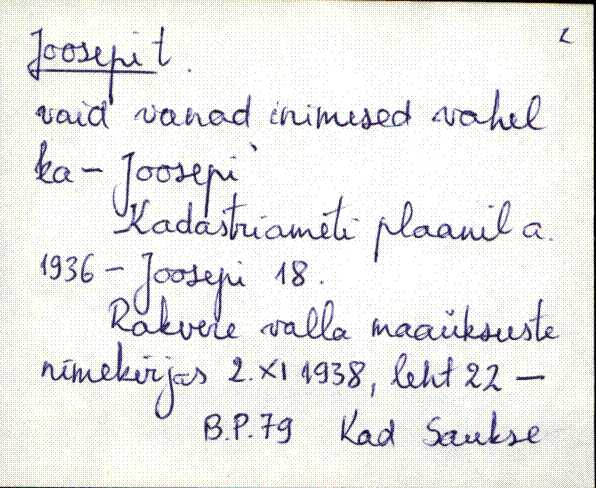 2
Joosepi t.
vaid vanad inimesed vahel
ka – Joosepi`
Kadastriameti plaanil a.
1936 – Joosepi 18.
Rakvere valla maaüksuste
nimekirjas 2.XI 1938, leht 22 –
B.P.79 Kad Saukse